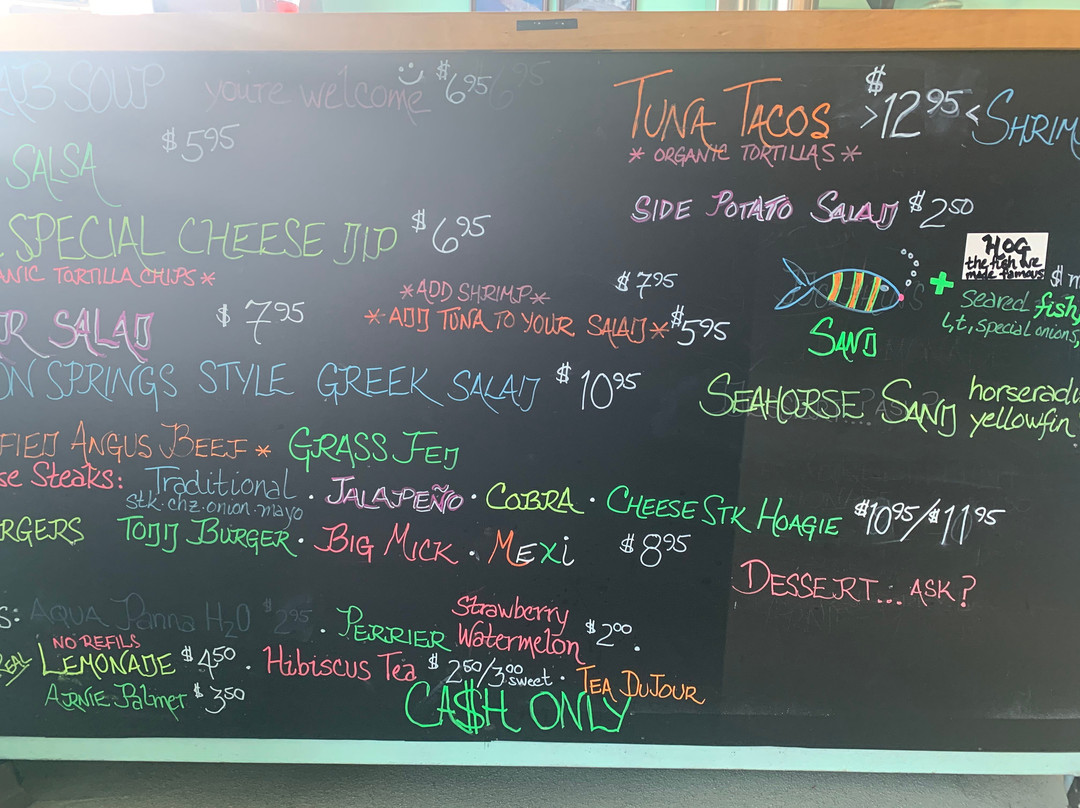 SOUP you're welcome $6.95
TUNA TACOS $ >12.95< SHRIM
* ORGANIC TORTILLAS *
SALSA $5.95
SIDE POTATO SALAD $2.50
SPECIAL CHEESE DIP $6.95
ANIC TORTILLA CHIPS *
HOG
the fish we
made famous
*ADD SHRIMP* $7.95
SALAD $7.95
*ADD TUNA TO YOUR SALAD* $5.95
+ seared fish,
l,t, special onions,
SAND
ON SPRINGS STYLE GREEK SALAD $10.95
SEAHORSE SAND horseradi
yellowfin
FIED ANGUS BEEF * GRASS FED
se Steaks: Traditional · JALAPEÑO · COBRA · CHEESE STK HOAGIE $10.95/$11.95
stk·chz·onion·mayo
RGERS TODD BURGER · BIG MICK · MEXi $8.95
DESSERT... ASK?
S: AQUA Panna H2O $2.95 · PERRIER Strawberry
Watermelon $2.00 ·
NO REFILS
REAL LEMONADE $4.50 · Hibiscus Tea $2.50/3.00 sweet · TEA DUJOUR
ARNIE Palmer $3.50
CA$H ONLY